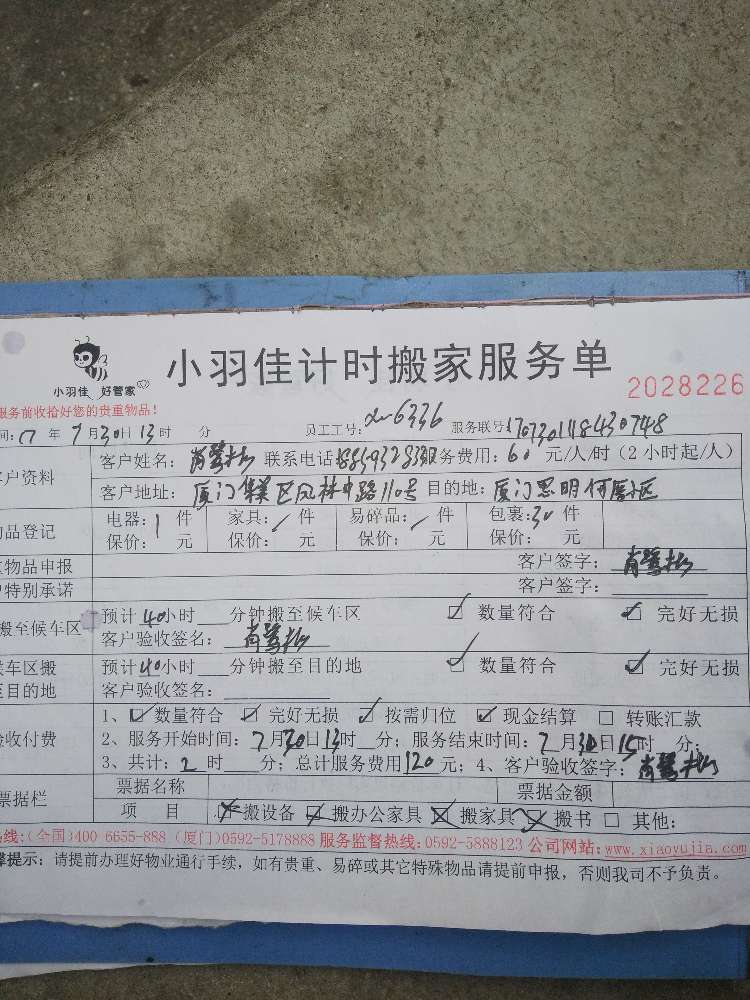 小羽佳计时搬家服务单
小羽佳 好管家
2028226
服务前收拾好您的贵重物品!
间: 17 年 7 月 30 日 13 时 分 员工工号: 6336 服务联号 170730118430748
客户资料 客户姓名: 肖鹭彬 联系电话 服务费用: 60 元/人/时 (2 小时起/人)
客户地址: 厦门集美区凤林中路110号 目的地: 厦门思明何厝小区
物品登记 电器: 1 件 家具: / 件 易碎品: / 件 包裹: 30 件
保价: 元 保价: 元 保价: 元 保价: 元
物品申报 客户签字: 肖鹭彬
特别承诺 客户签字:
搬至候车区 预计 40 小时 分钟搬至候车区 ☑ 数量符合 ☑ 完好无损
客户验收签名: 肖鹭彬
候车区搬 预计 40 小时 分钟搬至目的地 ☑ 数量符合 ☑ 完好无损
至目的地 客户验收签名:
1、☑ 数量符合 ☑ 完好无损 ☑ 按需归位 ☑ 现金结算 □ 转账汇款
验收付费 2、服务开始时间: 7 月 30 日 13 时 分; 服务结束时间: 7 月 30 日 15 时 分;
3、共计: 2 时 分; 总计服务费用 120 元; 4、客户验收签字: 肖鹭彬
票据栏 票据名称 票据金额
项 目 ☑ 搬设备 ☑ 搬办公家具 ☒ 搬家具 ☒ 搬书 □ 其他:
热线: (全国)400 6655-888 (厦门)0592-5178888 服务监督热线: 0592-5888123 公司网站: www.xiaoyujia.com
提示: 请提前办理好物业通行手续, 如有贵重、易碎或其它特殊物品请提前申报, 否则我司不予负责。